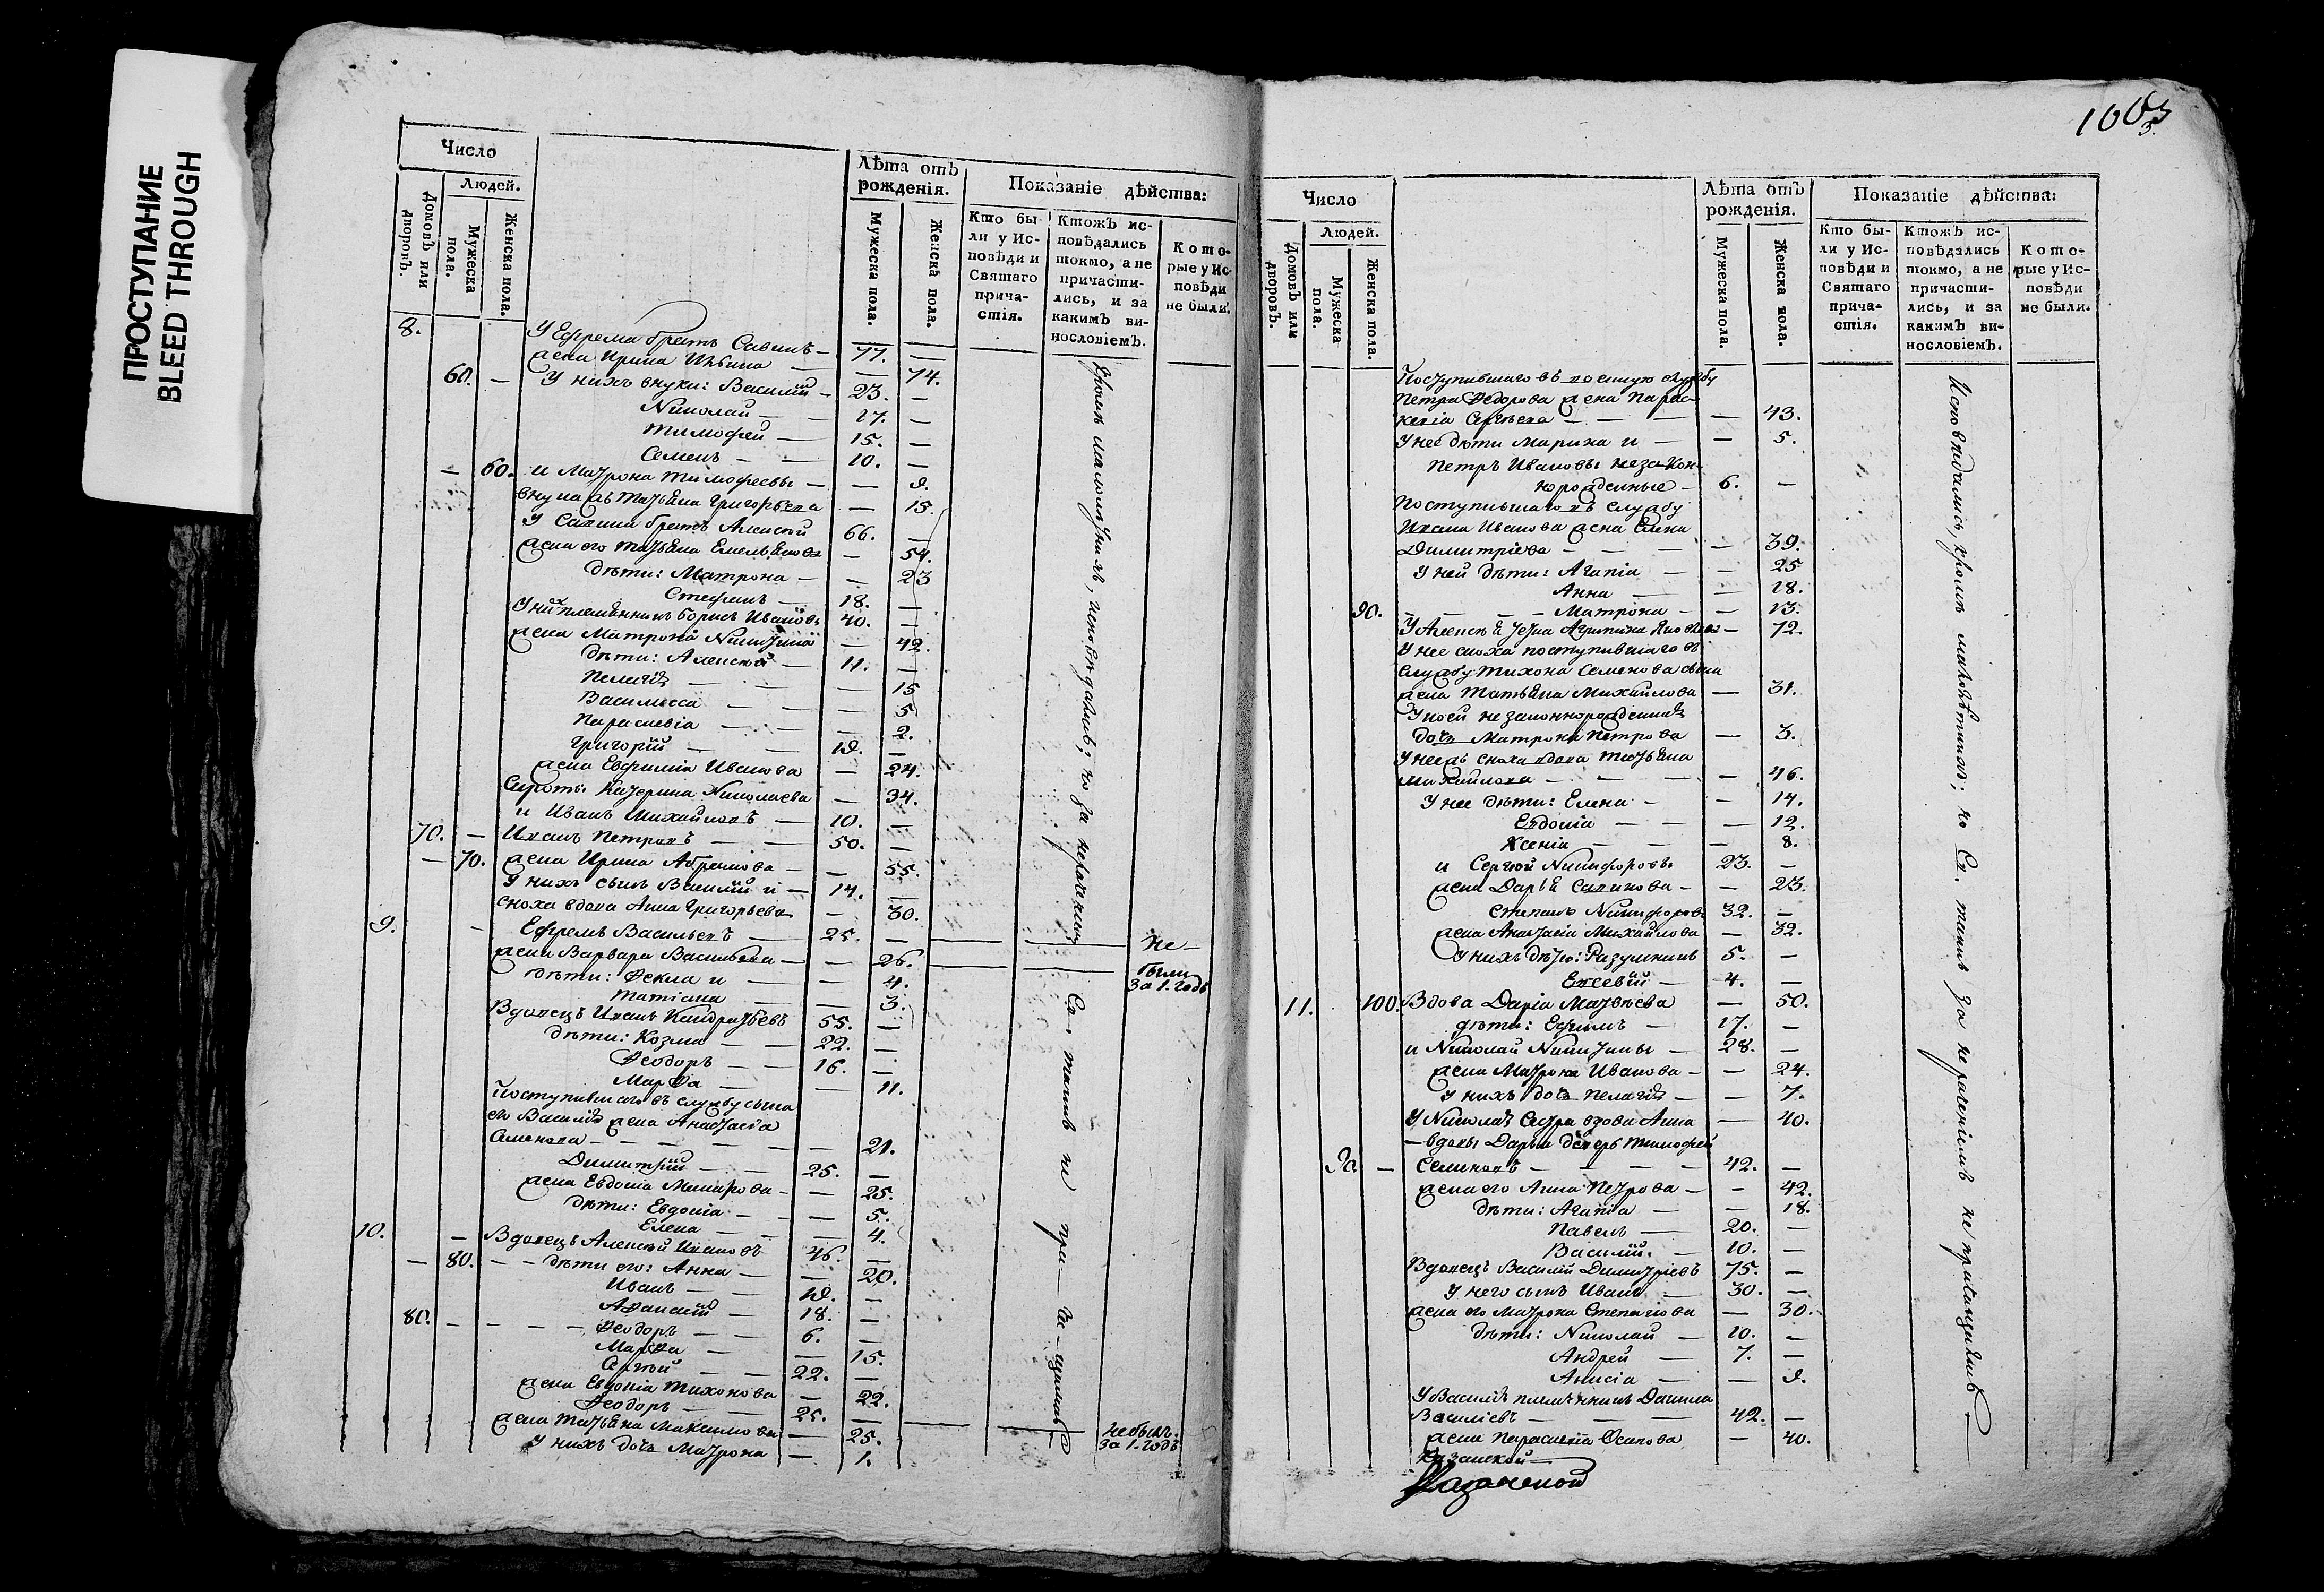 ПРОСТУПАНИЕ
BLEED THROUGH
Число
Людей.
Домовъ или дворовъ.
Мужеска пола.
Женска пола.
Лѣта отъ рожденія.
Мужеска пола.
Женска пола.
Показаніе дѣйства:
Кто были у Исповѣди и Святаго причастія.
Ктожъ исповѣдались токмо, а не причастились, и за какимъ винословіемъ.
Которые у Исповѣди не были.
8. У Ефрема братъ Савинъ — 77. —
жена Ирина — 74.
60. — У нихъ внуки: Василій — 23. —
Николай — 17. —
Тимофей — 15. —
Семенъ — 10. —
— 60. и Матрона Тимофеевы — — 9.
Татьяна Григорьева — 15.
У Савина братъ Алексей 66. —
жена его Татьяна Емельянова — 54.
дѣти: Матрона — — 23
Стефанъ — 18. —
У них племянникъ Борисъ Ивановъ 40. —
жена Матрона Никитина — 42.
дѣти: Алексей — 11. —
Пелагія — — 15
Василисса — — 5
Параскевія — — 2.
Григорій — 19. —
жена Евфимія Иванова — 24.
Сироты Катерина Николаева — 34.
и Иванъ Михайловъ — 10. —
70. — Иванъ Петровъ — 50. —
— 70. жена Ирина Абрамова — — 55.
У нихъ сынъ Василій и — 14. —
сноха вдова Анна Григорьева — 30.
9. — Ефремъ Васильевъ — 25. — не
жена Варвара Васильева — — 26. были
дѣти: Фекла и — — 4. за 1. годъ
Татіана — — 3.
Вдовецъ Иванъ Кандратьевъ 55. —
дѣти: Козма — 22. —
Феодоръ — 16. —
Марфа — — 11.
Поступившаго въ службу сына
его Василія жена Анастасіа
Семенова — — 21.
Димитрій — 25. —
жена Евдокіа — — 25.
дѣти: Евдокіа — — 5.
Елена — — 4.
10. — Вдовецъ Алексей Ивановъ 46. —
— 80. — дѣти его: Анна — — 20.
Иванъ — 19. —
Афанасій — 18. —
80. — Феодоръ — 6. —
Марфа — — 15.
Сергѣй — 22. —
жена Евдокіа Тихонова — 22.
Феодоръ — 25. —
жена Татьяна Максимова — 25. не былъ.
У нихъ дочь Матрона — 1. за 1. годъ
Кромѣ малолѣтнихъ, исповѣдались; но за нераченіемъ Св. таинъ не пріобщились
Число
Людей.
Домовъ или дворовъ.
Мужеска пола.
Женска пола.
Лѣта отъ рожденія.
Мужеска пола.
Женска пола.
Показаніе дѣйства:
Кто были у Исповѣди и Святаго причастія.
Ктожъ исповѣдались токмо, а не причастились, и за какимъ винословіемъ.
Которые у Исповѣди не были.
Поступившаго въ военую службу
Петра Федорова жена Парас-
кевіа Сергѣева — — 43.
У нее дѣти Марина и — — 5.
Петръ Ивановы незакон-
норожденные — 6. —
Поступившаго въ службу
Ивана Иванова жена Елена
Димитріева — — 39.
У ней дѣти: Агапіа — — 25
Анна — — 18.
90. — Матрона — — 13.
У Алексея тетка Агрипина — 72.
У нее сноха поступившаго въ
службу Тихона Семенова сына
жена Татьяна Михайлова — 31.
У ней незаконнорожденная
дочь Матрона Петрова — 3.
сноха вдова Татьяна
Михайлова — — 46.
У нее дѣти: Елена — — 14.
Евдокіа — — 12.
Ксеніа — — 8.
и Сергѣй Никифоровы 23. —
жена Дарья Савинова — — 23.
Степанъ Никифоровъ 32. —
жена Анастасіа Михайлова — 32.
У нихъ дѣти: Разумникъ 5. —
Евсевій — 4. —
11. 100. Вдова Даріа Матвѣева — 50.
дѣти: Ефимъ — 17. —
и Николай Никитины — 28. —
жена Матрона Иванова — — 24.
У нихъ дочь Пелагія — — 7.
У Николая сестра вдова Анна — 40.
— вдовы Дарьи деверь Тимофей
90. — Семеновъ — 42. —
жена его Анна Петрова — — 42.
дѣти: Агапіа — — 18.
Павелъ — 20. —
Василій. — 10. —
Вдовецъ Василій Димитріевъ 75. —
У него сынъ Иванъ — 30. —
жена его Матрона — 30.
дѣти: Николай — 10. —
Андрей — 7. —
Анисіа — — 9.
У Василія племянникъ Данила
Василіевъ — 42. —
жена Параскевіа Осипова — 40.
Казанской
Казанской
Исповѣдались, кромѣ малолѣтныхъ; но Св. таинъ за нераченіемъ не пріобщились